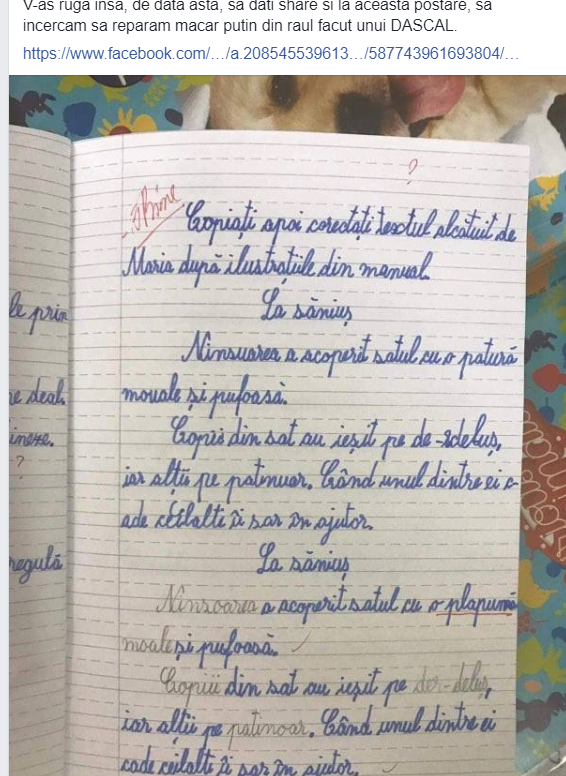 V-as ruga insa, de data asta, sa dati share si la aceasta postare, sa
incercam sa reparam macar putin din raul facut unui DASCAL.
https://www.facebook.com/…/a.208545539613…/587743961693804/…
?
Bine
Copiați apoi corectați textul alcătuit de
Maria după ilustrațiile din manual.
La săniuș
Ninsuarea a acoperit satul cu o patură
mouale și pufoasă.
Copis din sat au ieșit pe de-rdeluș,
iar alții pe patinuar. Când unul dintre ei c-
ade ceilalti îi sar în ajutor.
La săniuș
Ninsoarea a acoperit satul cu o plapumă
moale și pufoasă.
Copiii din sat au ieșit pe der-deluș,
iar alții pe patinoar. Când unul dintre ei
cade ceilalti îi sar în ajutor.
le prin
e deal.
?
regulă